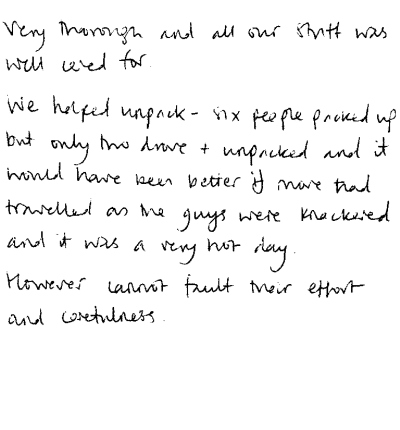 Very thorough and all our stuff was
well cared for.
We helped unpack - six people packed up
but only two drove + unpacked and it
would have been better if more had
travelled as the guys were knackered
and it was a very hot day.
However cannot fault their effort
and carefulness.